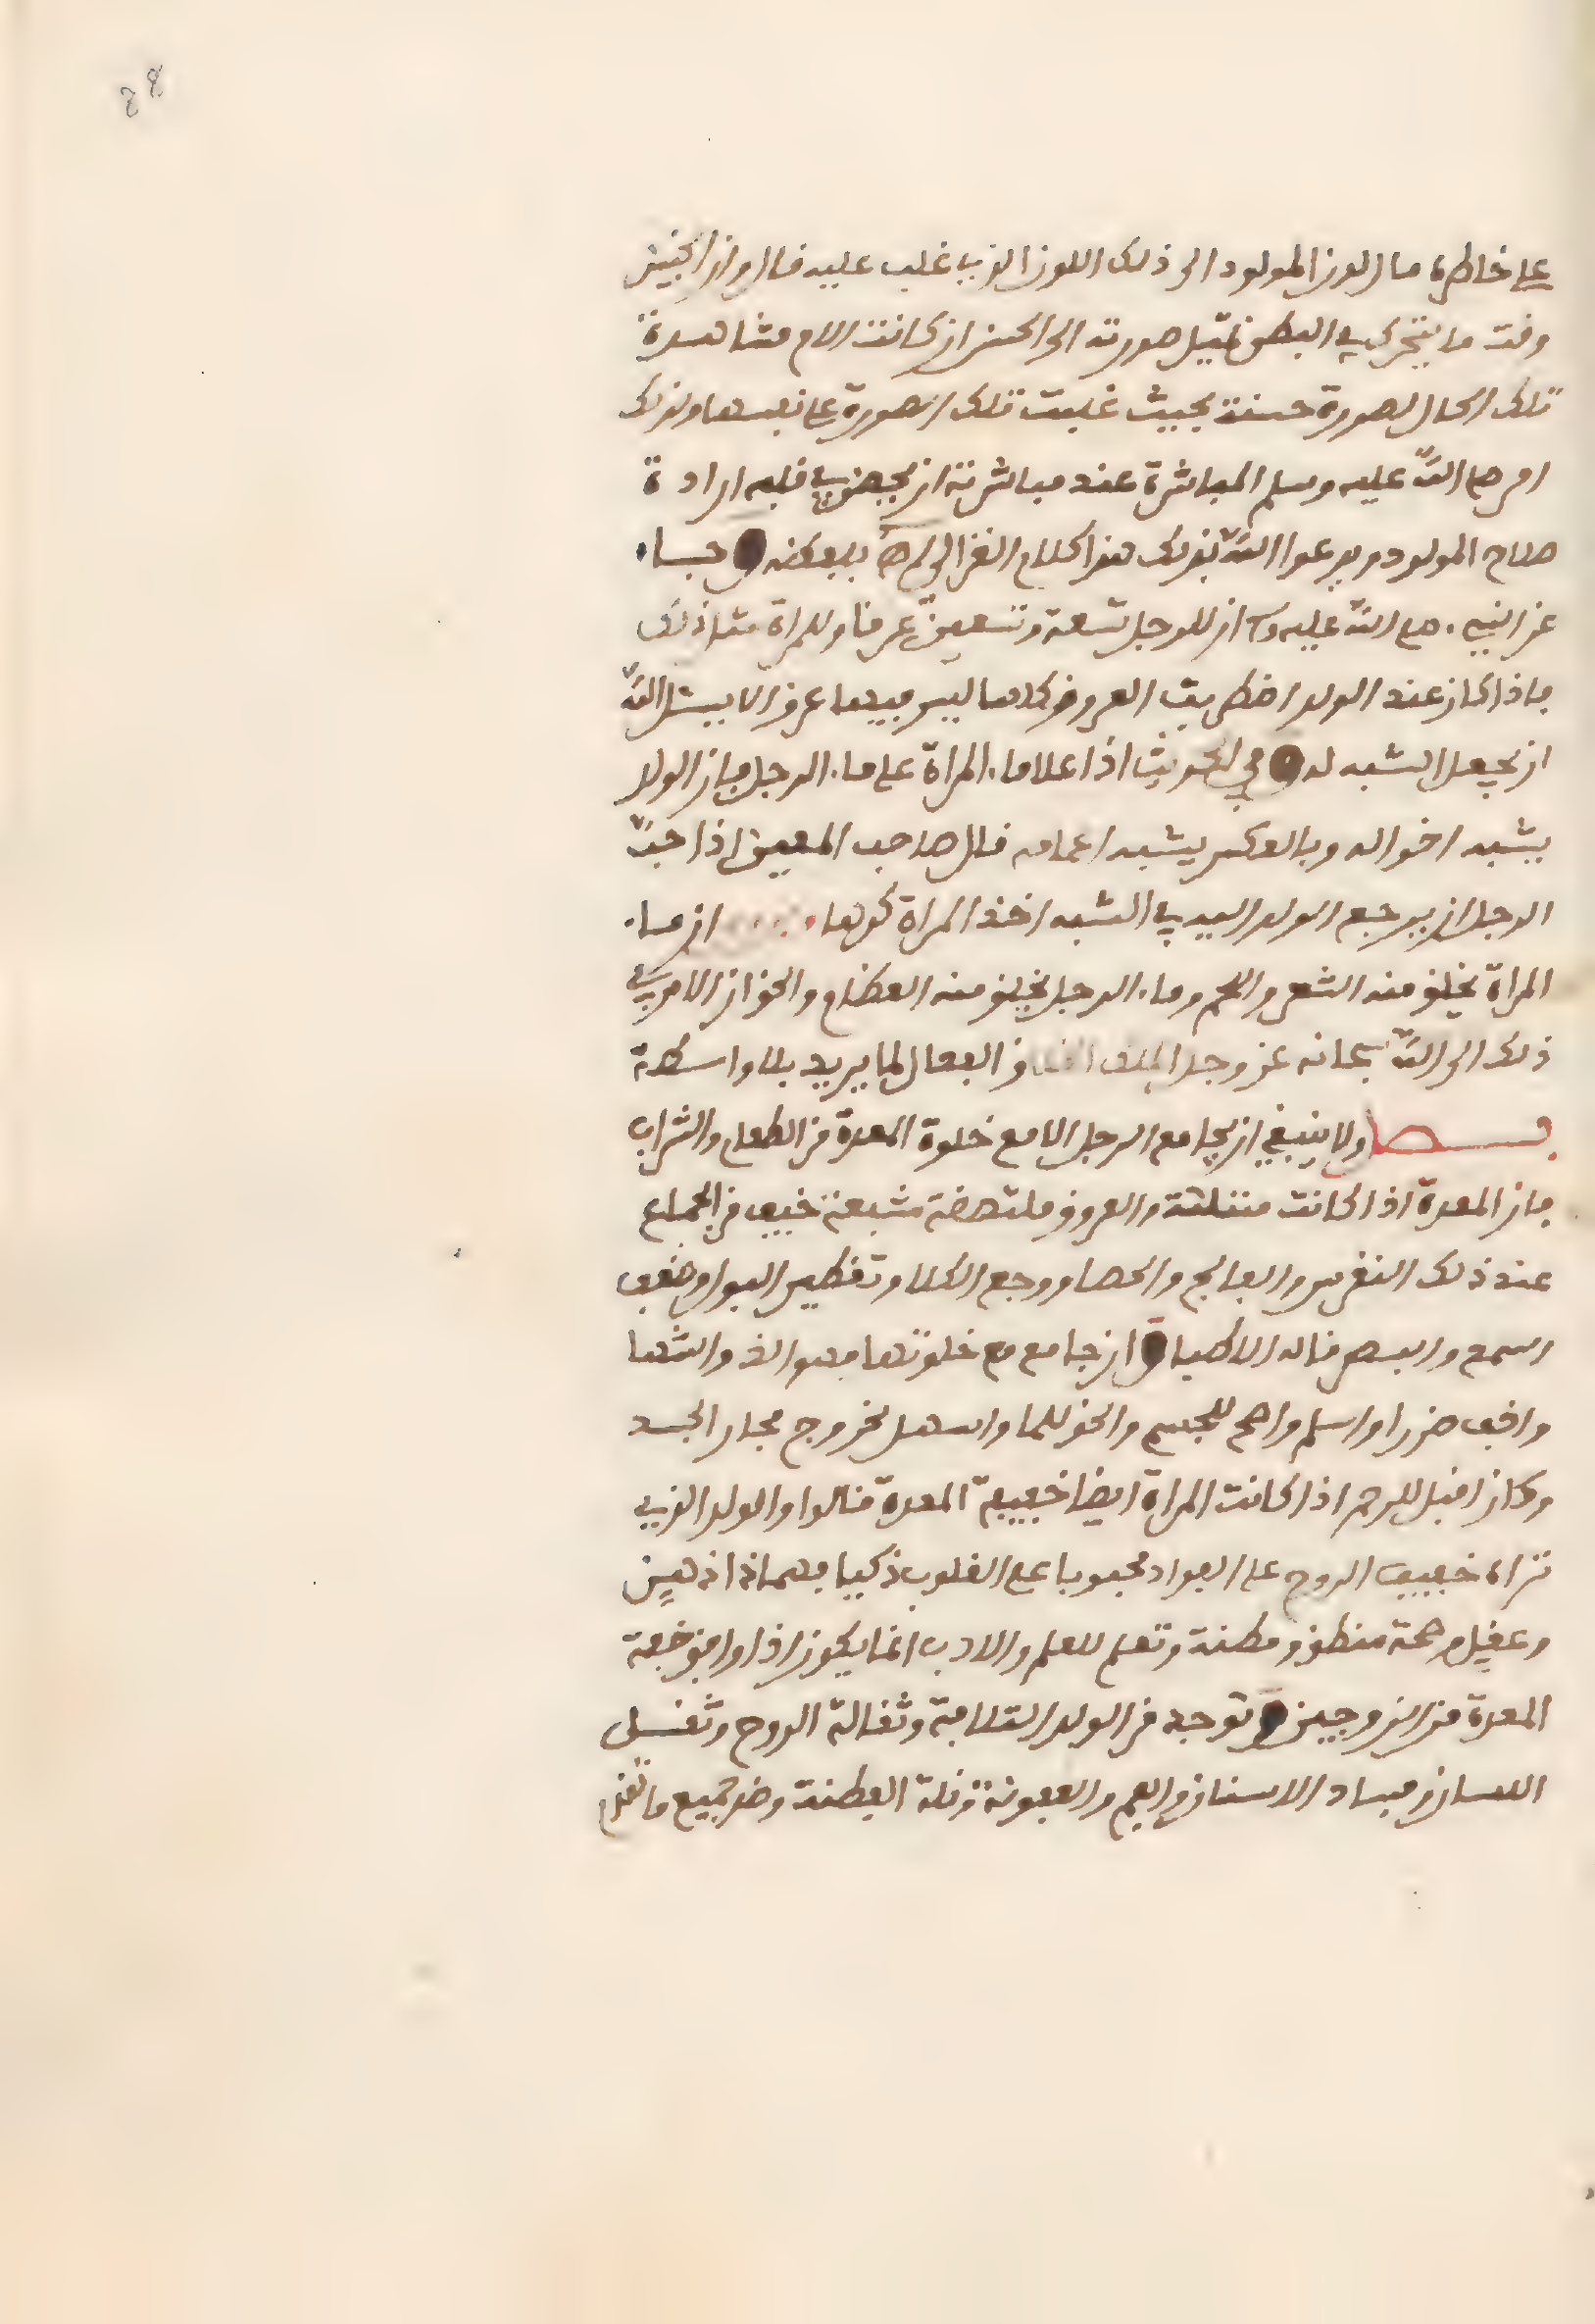 88
على خاطره مال لون المولود الى ذلك اللون الذي غلب عليه قال وان الجنين
وقت ما يتحرك في البطن تميل صورته الى الحسن ان كانت الام مشاهدة
تلك الحال لصورة حسنة بحيث غلبت تلك الصورة على نفسها ولذلك
امر صلى الله عليه وسلم المباشرة عند مباشرته ان يحضر في قلبه ارادة
صلاح المولود ويدعوا الله بذلك هذا كلام الغزالي بلفظه وجاء
عن النبي صلى الله عليه وسلم ان للرجل تسعة وتسعين عرقا وللمراة مثل ذلك
فاذا كان عند الولد اضطربت العروق كلها ليس فيها عرق الا يسئل الله
ان يجعل الشبه له وفي الحديث اذا علا ماء المراة على ماء الرجل فان الولد
يشبه اخواله وبالعكس يشبه اعمامه قال صاحب المعين اذا احب
الرجل ان يرجع الولد اليه في الشبه اخذ المراة كرها ان ماء
المراة يخلق منه الشعر واللحم وماء الرجل يخلق منه العظام والحق ان الامر في
ذلك الى الله سبحانه عز وجل الملك الخلاق الفعال لما يريد بلا واسطة
فصل ولا ينبغي ان يجامع الرجل الا مع خلوة المعدة من الطعام والشراب
فان المعدة اذا كانت ممتلئة والعروق ملتهضة مشبعة خيف من الجماع
عند ذلك النقرس والفالج والحصا ووجع الكلا وتقطير البول وضعف
السمع والبصر قاله الاطبا وان جامع مع خلوتها فهو الذ واشها
واخف ضررا واسلم واصح للجسم والحق للما واسهل لخروج مجار الجسد
وكان اقبل للرحم اذا كانت المراة ايضا خفيفة المعدة قالوا والولد الذي
تراه خفيف الروح على الفواد محبوبا على القلوب ذكيا فهما ذا ذهين
وعقل وهمة منطق وفطنة وتعلم للعلم والادب انما يكون اذا وافق خفة
المعدة من الزوجين وتوجد في الولد البلادة وثقالة الروح وثقل
اللسان وفساد الاسنان والفم والعفونة وقلة الفطنة وضد جميع ما تقدم